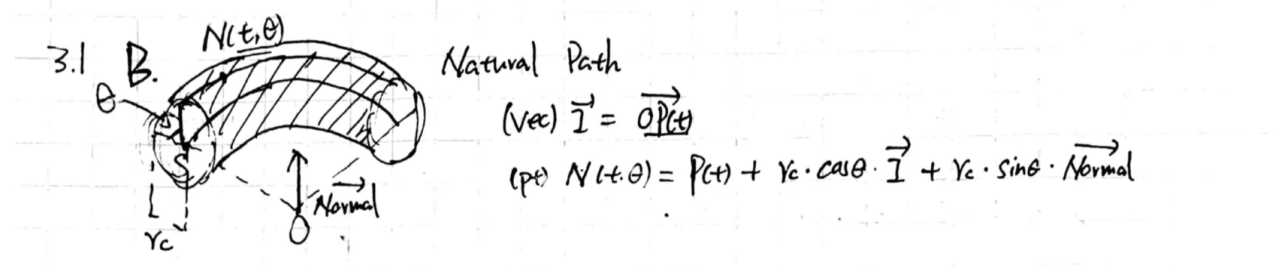 3.1 B.
N(t,θ)
θ
rc
Normal
O
Natural Path
(Vec) I = OP(t)
(pt) N(t.θ) = P(t) + rc · cosθ · I + rc · sinθ · Normal